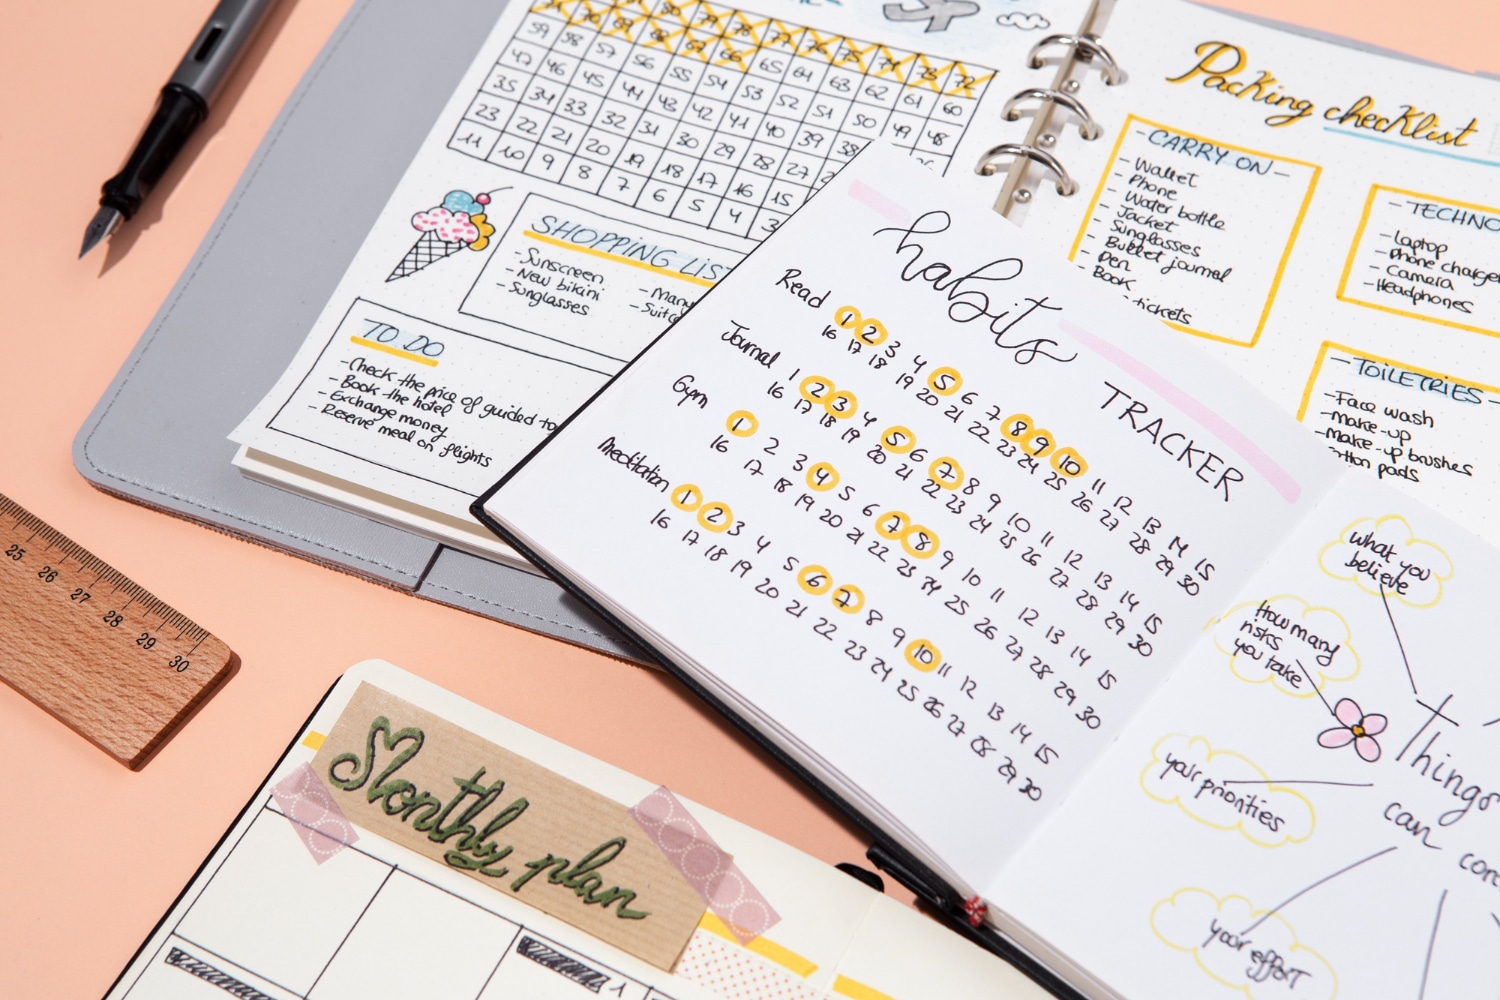 80 79 78 77 76 75 74 73 72
59 58 57 56 55 54 53 52 51 50 49 48
71 70 69 68 67 66 65 64 63 62 61 60
47 46 45 44 43 42 41 40 39 38
35 34 33 32 31 30 29 28 27
23 22 21 20 19 18 17 16 15
11 10 9 8 7 6 5 4 3
SHOPPING LIST
- Sunscreen
- New bikini
- Sunglasses
TO DO
- Check the price of guided to
- Book the hotel
- Exchange money
- Reserve meal on flights
Packing checklist
- CARRY ON -
- Wallet
- Phone
- Water bottle
- Jacket
- Sunglasses
- Bullet journal
- Pen
- Book
- tickets
- TECHNO
- Laptop
- Phone charger
- Camera
- Headphones
- TOILETRIES -
- Face wash
- Make-up
- Make-up brushes
pads
habits
TRACKER
Read 1 2 3 4 5 6 7 8 9 10 11 12 13 14 15
16 17 18 19 20 21 22 23 24 25 26 27 28 29 30
Journal 1 2 3 4 5 6 7 8 9 10 11 12 13 14 15
16 17 18 19 20 21 22 23 24 25 26 27 28 29 30
Gym 1 2 3 4 5 6 7 8 9 10 11 12 13 14 15
16 17 18 19 20 21 22 23 24 25 26 27 28 29 30
Meditation 1 2 3 4 5 6 7 8 9 10 11 12 13 14 15
16 17 18 19 20 21 22 23 24 25 26 27 28 29 30
what you
believe
How many
risks
you take
your priorities
your effort
Things
can con
25 26 27 28 29 30
Monthly plan
1